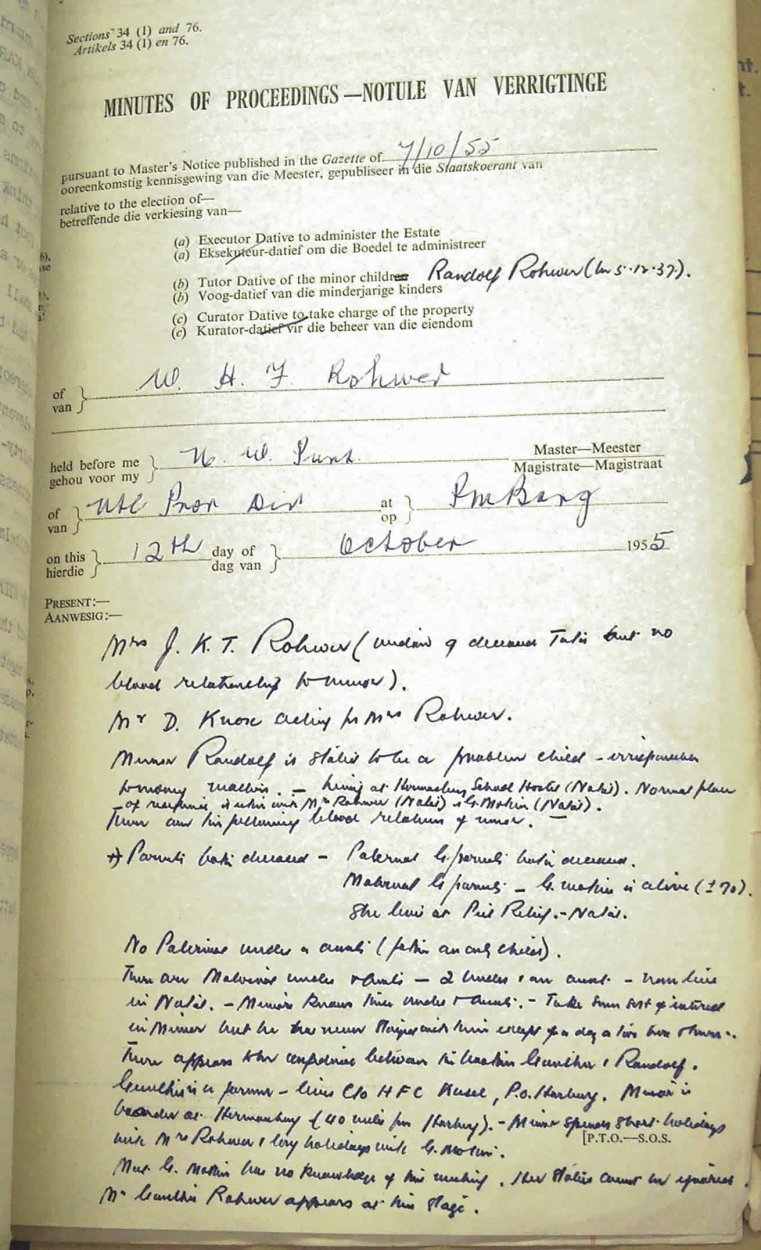 Sections 34 (1) and 76.
Artikels 34 (1) en 76.
MINUTES OF PROCEEDINGS—NOTULE VAN VERRIGTINGE
pursuant to Master's Notice published in the Gazette of 7/10/55
ooreenkomstig kennisgewing van die Meester, gepubliseer in die Staatskoerant van
relative to the election of—
betreffende die verkiesing van—
(a) Executor Dative to administer the Estate
(a) Eksekuteur-datief om die Boedel te administreer
(b) Tutor Dative of the minor children Randolf Rohwer (bn 5.12.37).
(b) Voog-datief van die minderjarige kinders
(c) Curator Dative to take charge of the property
(c) Kurator-datief vir die beheer van die eiendom
of W. H. F Rohwer
van
held before me Master—Meester
gehou voor my Magistrate—Magistraat
of Ntl Prov Div at PMBurg
van op
on this 12th day of October 1955
hierdie dag van
PRESENT:—
AANWESIG:—
Mrs J. K. T. Rohwer (widow of deceased but no
blood relationship to minor).
Mr D. Knox acting for Mrs Rohwer.
Minor Randolf is stated to be a problem child -
to many matters. — living at Hermannsburg School Hostel (Natal). Normal place
of residence is with Mrs Rohwer (Natal) & G. Mother (Natal).
There are the following blood relations of minor. —
Parents both deceased - Paternal G. parents both deceased.
Maternal G. parents - G. mother is alive (±70).
She lives at Piet Retief.-Natal.
No Paternal uncles or aunts (father an only child).
There are Maternal uncles & aunts — 2 uncles & an aunt - live
in Natal. - Minor knows these uncles & aunts. - Take some sort of interest
in Minor but he has never stayed with them except for a day or two
There appears to be between the brothers Gunther & Randolf.
Gunther is a farmer - lives C/o H F C Kusel, P.O. Harburg. Minor is
boarder at Hermannsburg (40 miles from Harburg). - Minor spends short holidays
with Mrs Rohwer & long holidays with G. Mother.
[P.T.O.—S.O.S.
G. Mother has no knowledge of this meeting.
Mr Gunther Rohwer appears at this stage.